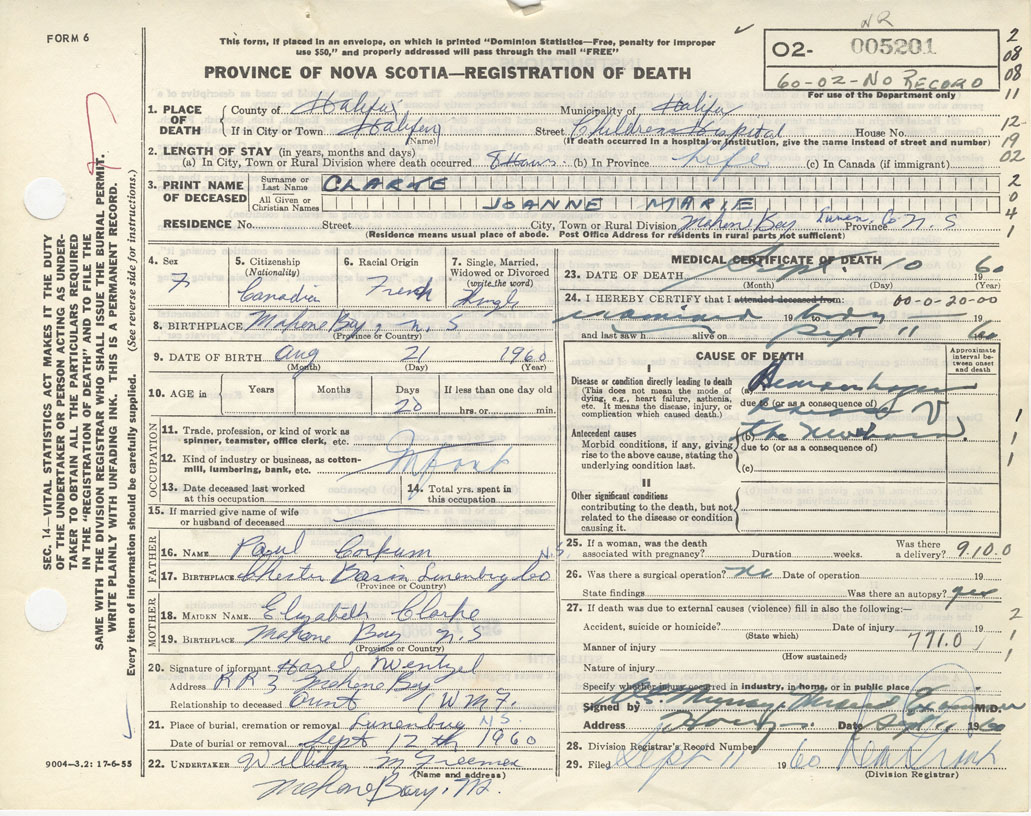 NR
FORM 6
This form, if placed in an envelope, on which is printed "Dominion Statistics—Free, penalty for improper
use $50," and properly addressed will pass through the mail "FREE"
PROVINCE OF NOVA SCOTIA—REGISTRATION OF DEATH
02- 005201
60-02-No RECORD
For use of the Department only
2
08
08
11
12-
19
02
2
0
4
1
1. PLACE OF DEATH
County of Halifax Municipality of Halifax
If in City or Town Halifax Street Childrens Hospital House No.
(Name) (If death occurred in a hospital or institution, give the name instead of street and number)
2. LENGTH OF STAY (in years, months and days)
(a) In City, Town or Rural Division where death occurred 8 Hours (b) In Province Life (c) In Canada (if immigrant)
3. PRINT NAME OF DECEASED
Surname or Last Name CLARKE
All Given or Christian Names JOANNE MARIE
RESIDENCE No. Street City, Town or Rural Division Mahone Bay Lunen. Co Province N. S
(Residence means usual place of abode. Post Office Address for residents in rural parts not sufficient)
4. Sex F
5. Citizenship (Nationality) Canadia
6. Racial Origin French
7. Single, Married, Widowed or Divorced (write the word) Single
8. BIRTHPLACE Mahone Bay, N. S
(Province or Country)
9. DATE OF BIRTH Aug 21 1960
(Month) (Day) (Year)
10. AGE in Years Months Days 20 If less than one day old hrs. or min.
OCCUPATION
11. Trade, profession, or kind of work as spinner, teamster, office clerk, etc.
12. Kind of industry or business, as cotton-mill, lumbering, bank, etc. Infant
13. Date deceased last worked at this occupation
14. Total yrs. spent in this occupation
15. If married give name of wife or husband of deceased
FATHER
16. NAME Paul Corkum
17. BIRTHPLACE Chester Basin Lunenburg Co N.S.
(Province or Country)
MOTHER
18. MAIDEN NAME Elizabeth Clarke
19. BIRTHPLACE Mahone Bay N. S
(Province or Country)
20. Signature of informant Hazel Wentzel
Address R R 3 Mahone Bay
Relationship to deceased Aunt (W M F.
21. Place of burial, cremation or removal Lunenburg N.S.
Date of burial or removal Sept 12th 1960
22. UNDERTAKER William M Freeman
(Name and address)
Mahone Bay, N.
MEDICAL CERTIFICATE OF DEATH
23. DATE OF DEATH Sept. 10 1960
(Month) (Day) (Year)
24. I HEREBY CERTIFY that I attended deceased from: 00-0-20-00
examined 19 body
and last saw h alive on Sept 11 60
CAUSE OF DEATH
Approximate interval between onset and death
I
Disease or condition directly leading to death
(This does not mean the mode of dying, e.g., heart failure, asthenia, etc. It means the disease, injury, or complication which caused death.)
(a) Hemorrhagic
due to (or as a consequence of)
disease of
Antecedent causes
Morbid conditions, if any, giving rise to the above cause, stating the underlying condition last.
(b) the Newborn.
due to (or as a consequence of)
(c)
II
Other significant conditions
contributing to the death, but not related to the disease or condition causing it.
1
1
1
1
25. If a woman, was the death associated with pregnancy? Duration weeks. Was there a delivery? 9.10.0
26. Was there a surgical operation? no Date of operation 19
State findings Was there an autopsy? yes
27. If death was due to external causes (violence) fill in also the following:—
Accident, suicide or homicide? Date of injury 19
(State which)
Manner of injury 771.0
(How sustained)
Nature of injury
2
1
1
Specify whether injury occurred in industry, in home, or in public place
Signed by Murray Medical Examiner M.D.
Address Date Sept 11 1960
28. Division Registrar's Record Number
29. Filed Sept 11 1960
(Division Registrar)
SEC. 14—VITAL STATISTICS ACT MAKES IT THE DUTY
OF THE UNDERTAKER OR PERSON ACTING AS UNDER-
TAKER TO OBTAIN ALL THE PARTICULARS REQUIRED
IN THE "REGISTRATION OF DEATH" AND TO FILE THE
SAME WITH THE DIVISION REGISTRAR WHO SHALL ISSUE THE BURIAL PERMIT.
WRITE PLAINLY WITH UNFADING INK. THIS IS A PERMANENT RECORD.
Every item of information should be carefully supplied. (See reverse side for instructions.)
9004—3.2: 17-6-55